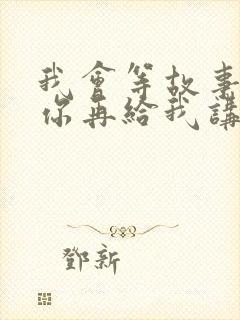 我會等故事
你再給我講
鄧新